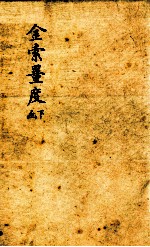 金索墨度
下
函